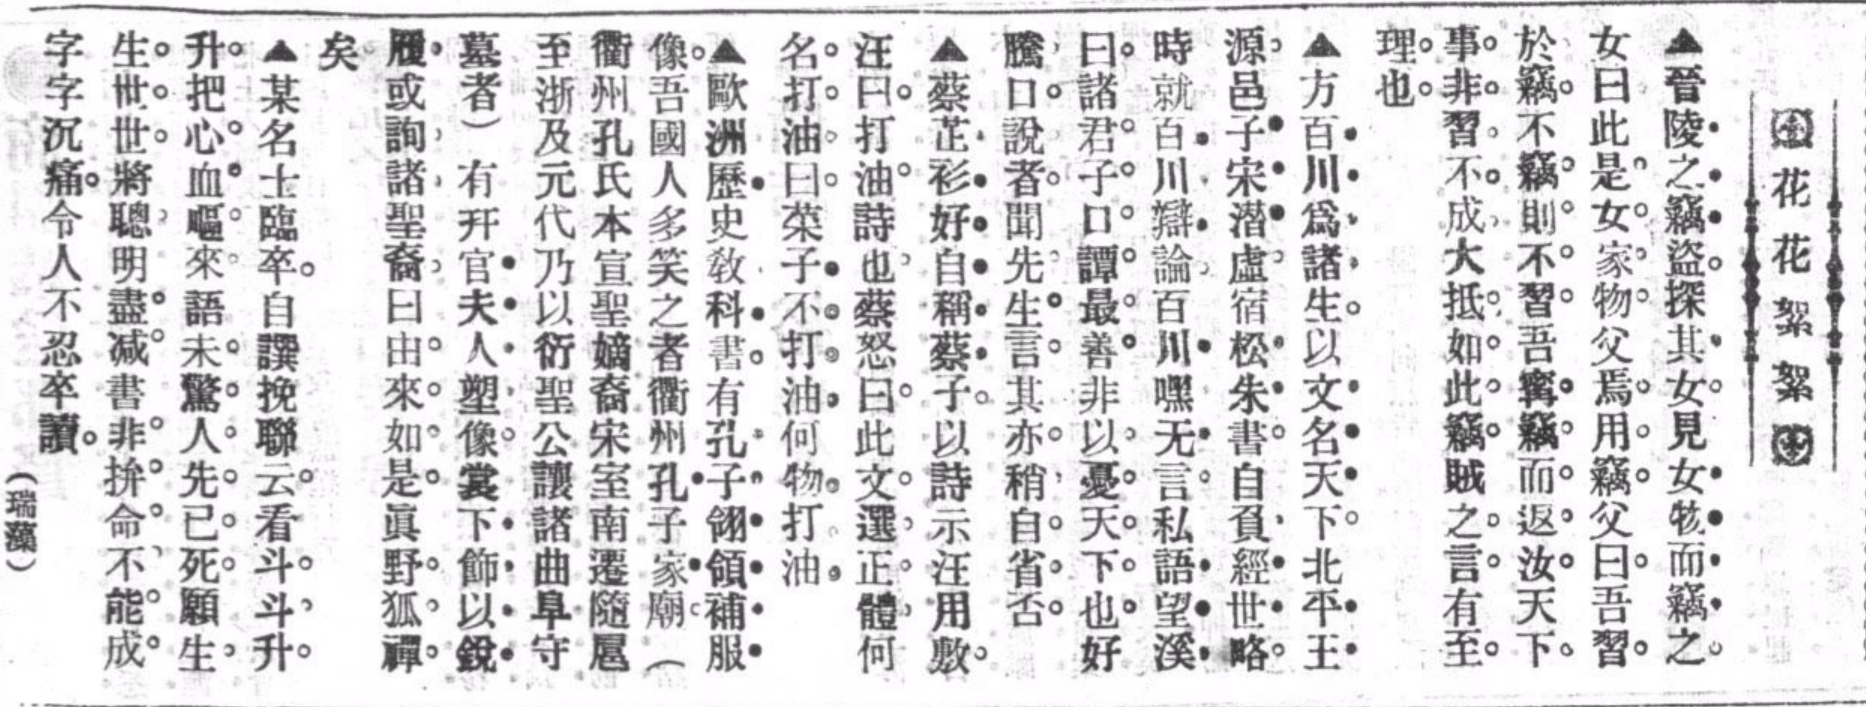 花花絮絮
▲晉陵之竊盜探其女見女物而竊之
女曰此是女家物父焉用竊父曰吾習
於竊不竊則不習吾寗竊而返汝天下
事非習不成大抵如此竊賊之言有至
理也
▲方百川爲諸生以文名天下北平王
源邑子宋潛虛宿松朱書自負經世略
時就百川辯論百川嘿无言私語望溪
曰諸君子口譚最善非以憂天下也好
騰口說者聞先生言其亦稍自省否
▲蔡芷衫好自稱蔡子以詩示汪用敷
汪曰打油詩也蔡怒曰此文選正體何
名打油曰菜子不打油何物打油
▲歐洲歷史敎科書有孔子翎領補服
像吾國人多笑之者衢州孔子家廟（
衢州孔氏本宣聖嫡裔宋室南遷隨扈
至浙及元代乃以衍聖公讓諸曲阜守
墓者）有幵官夫人塑像裳下飾以銳
履或詢諸聖裔曰由來如是眞野狐禪
矣
▲某名士臨卒自譔挽聯云看斗斗升
升把心血嘔來語未驚人先已死願生
生世世將聰明盡减書非拚命不能成
字字沉痛令人不忍卒讀
（瑞藻）